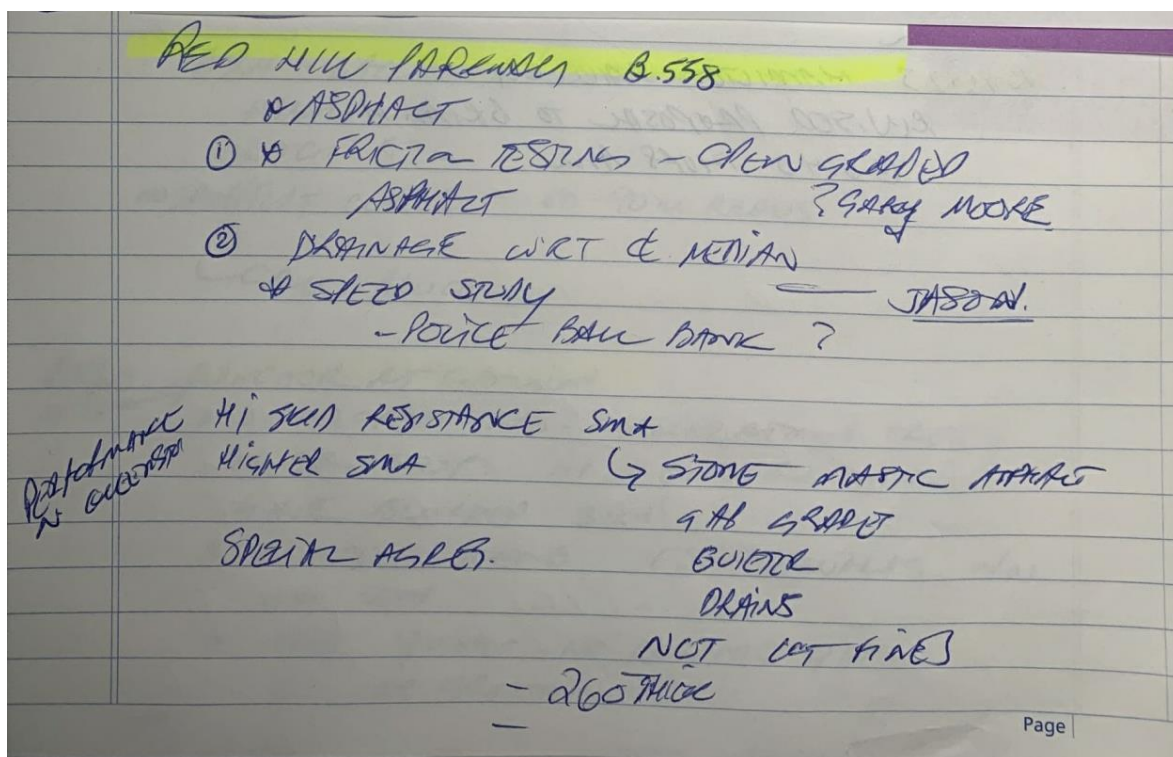 RED HILL PARKWAY B.558
* ASPHALT
① * FRICTION TESTING - OPEN GRADED
ASPHALT ? GARY MOORE
② DRAINAGE WRT ℄ MEDIAN
* SPEED STUDY JASON.
- POLICE BALL BANK ?
PERFORMANCE
Hi SKID RESISTANCE SMA
HIGHER SMA ↳ STONE MASTIC ASPHALT
GAP GRADED
SPECIAL AGREG. QUIETER
DRAINS
NOT LOT FINES
- 260 THICK
-
Page